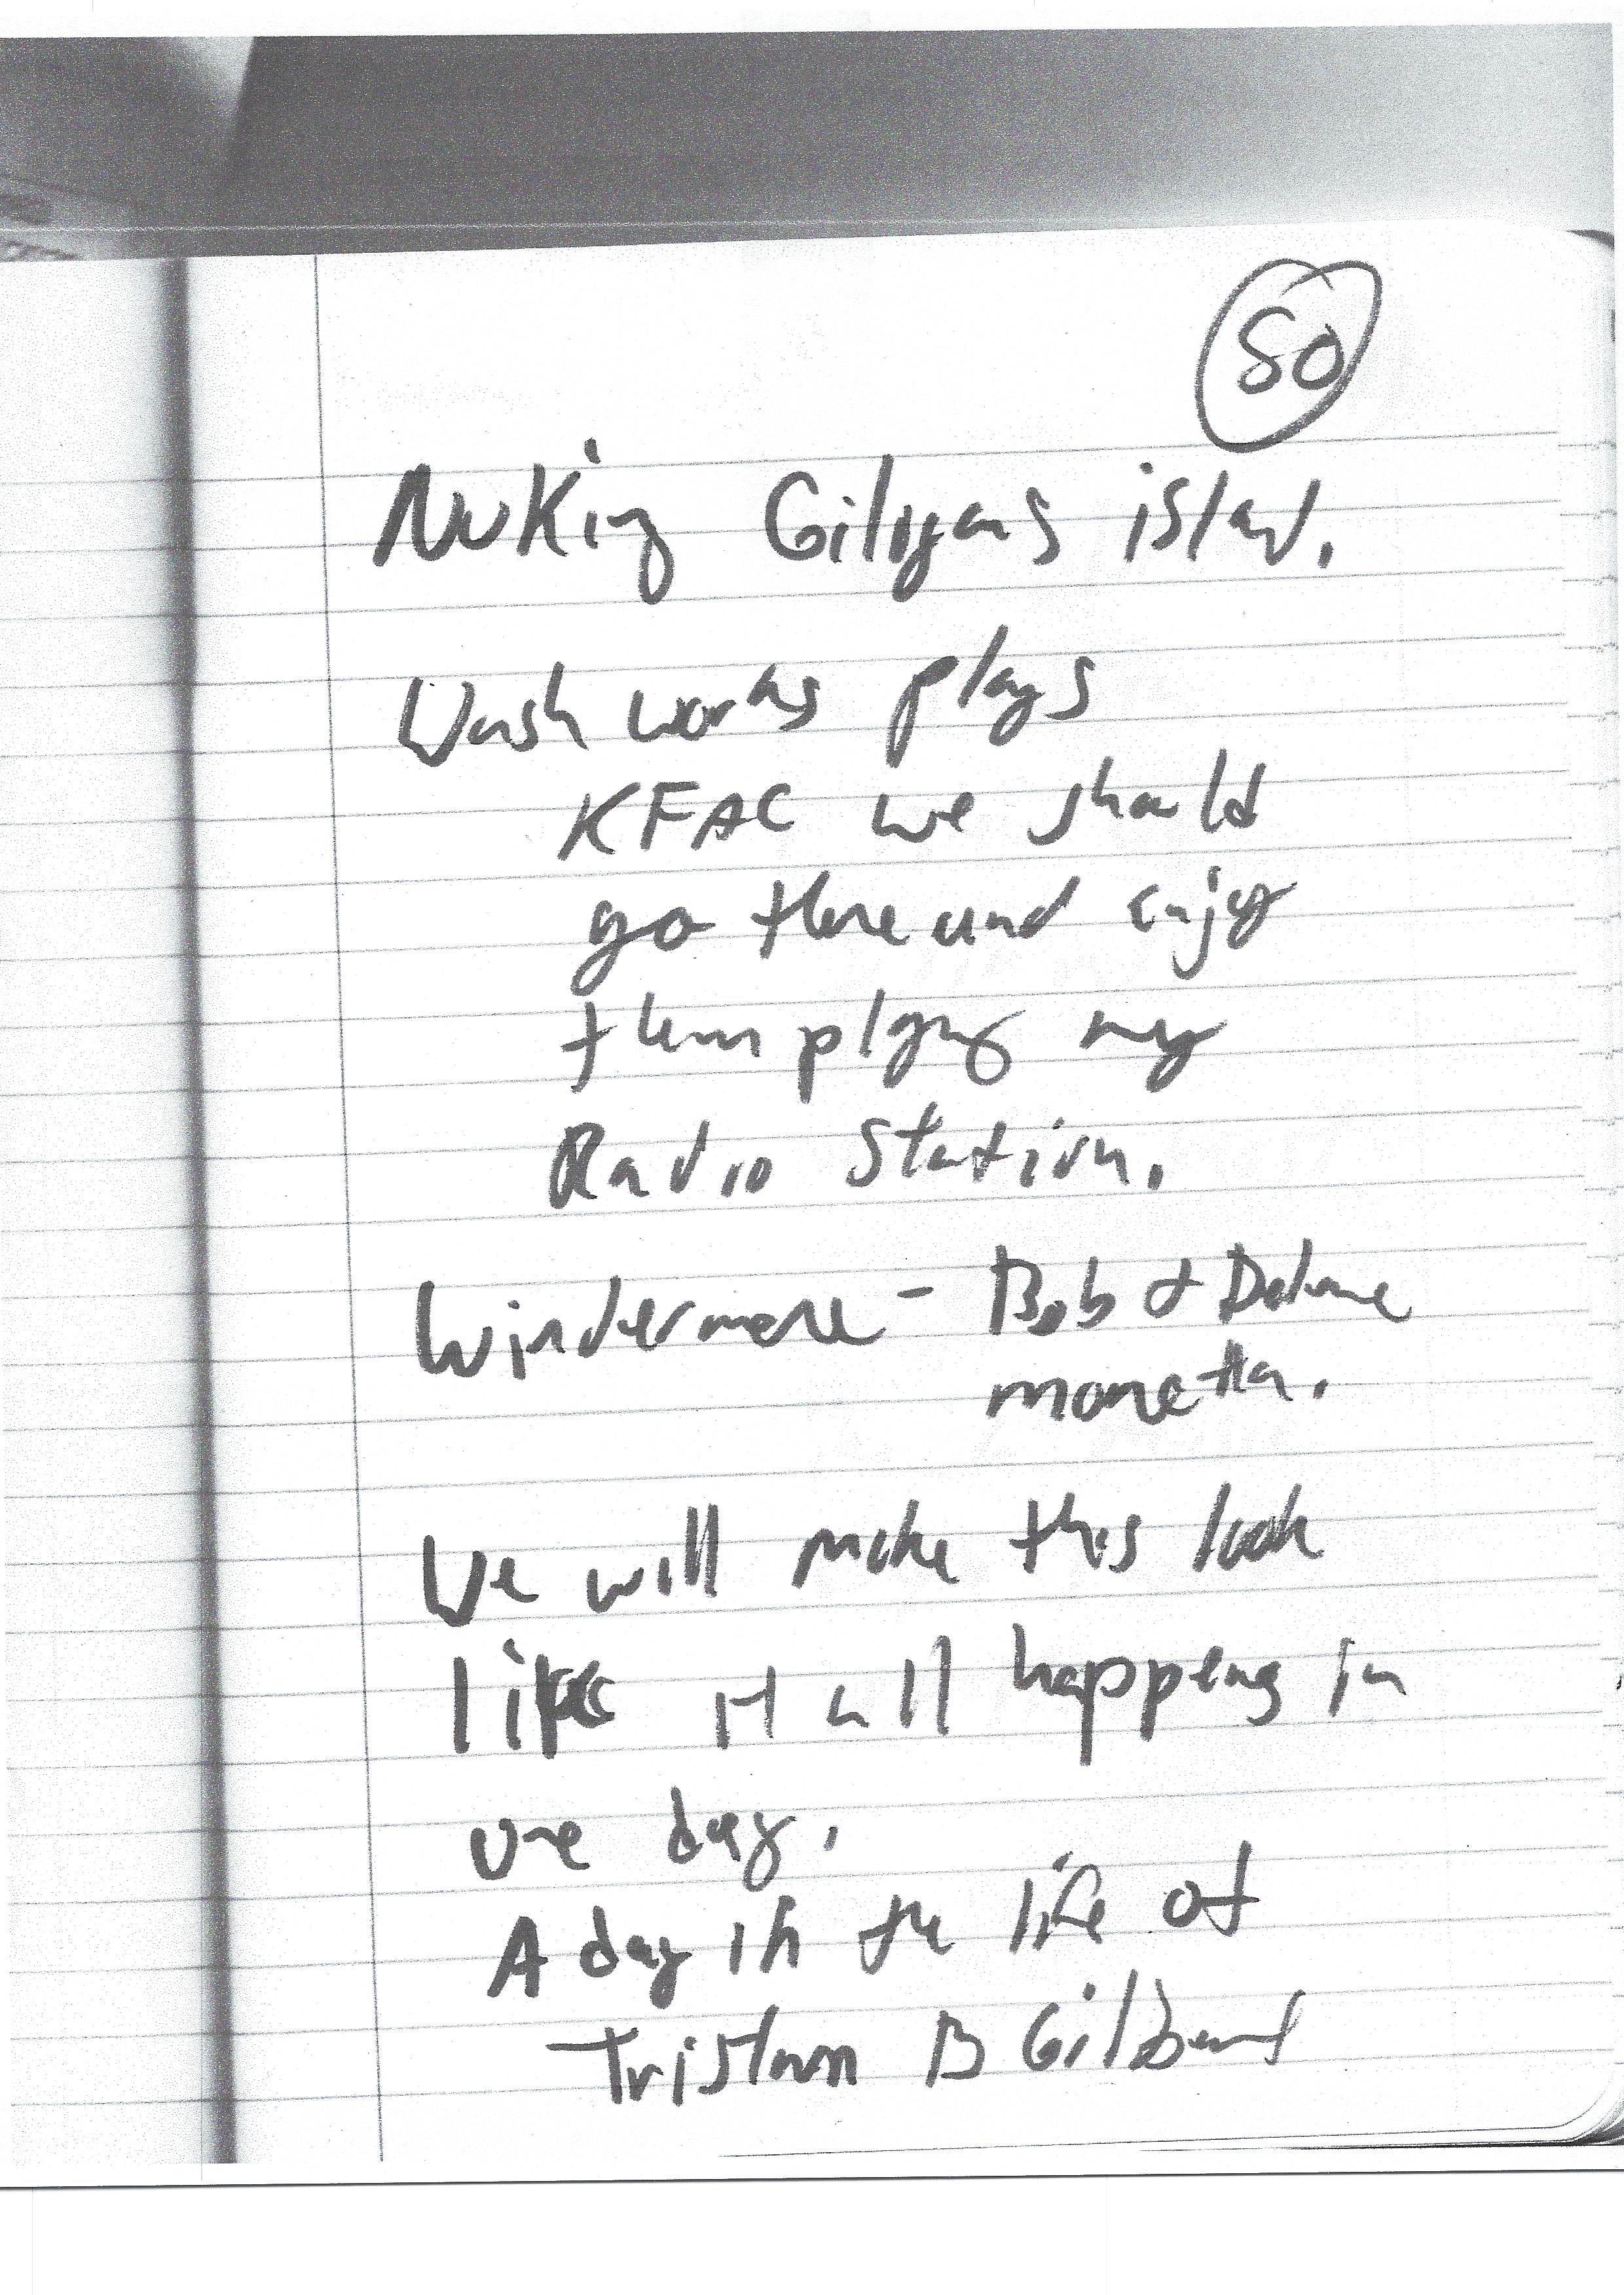 50
Nuking Giligans island.
Wash works plays
KFAC we should
go there and enjoy
them playing my
Radio Station.
Windermere - Bob &
We will make this look
like it all happens in
one day.
A day in the life of
Tristann B Gilbert